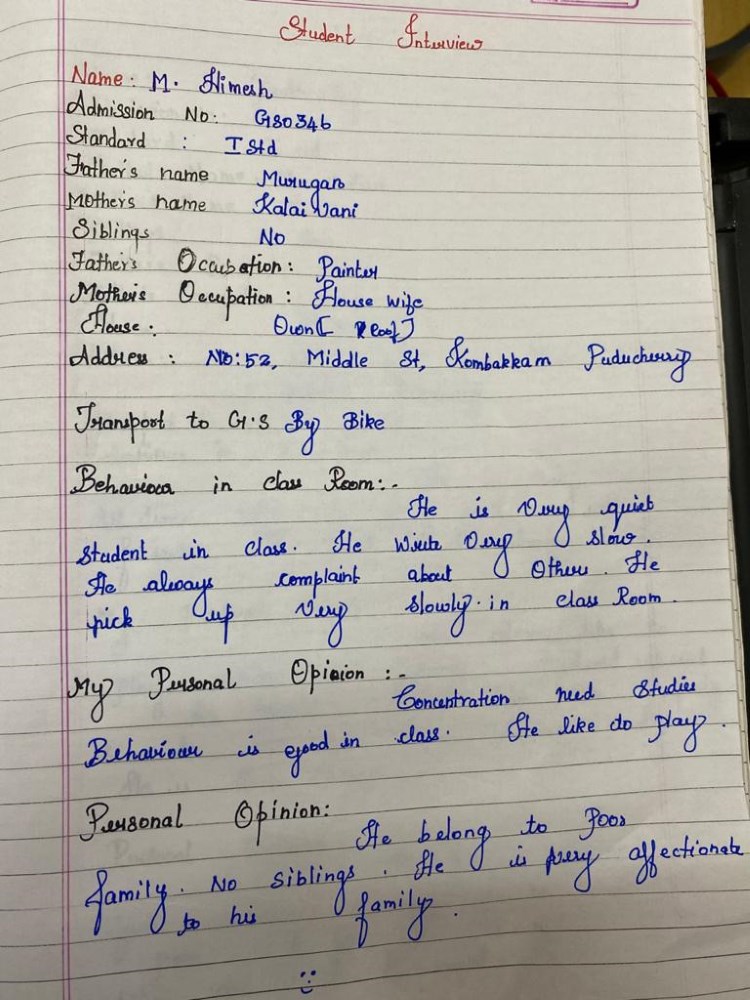 Student Interview
Name: M. Himesh
Admission No: GS0346
Standard : I Std
Father's name Murugan
Mother's name Kalai Vani
Siblings No
Father's Occubation: Painter
Mother's Occupation : House wife
House: Own [ Roof]
Address : No:52, Middle St, Kombakkam Puducherry
Transport to G.S By Bike
Behaviour in class Room:-
He is very quiet
student in class. He write very slow.
He always complaint about others. He
pick up very slowly in class Room.
My Personal Opinion :-
Concentration need studies
Behaviour is good in class. He like do play.
Personal Opinion:
He belong to Poor
family. No siblings. He is very affectionate
to his family.